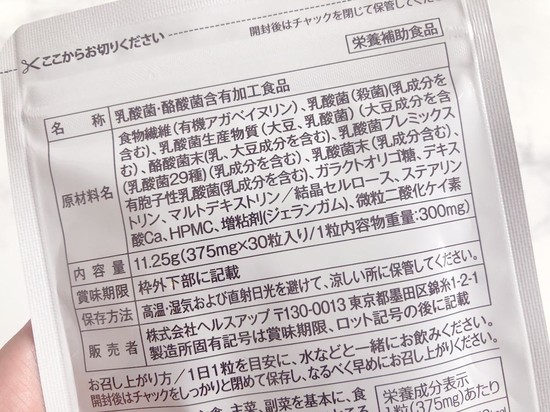 ここからお切りください
開封後はチャックを閉じて保管してく
栄養補助食品
名　称 乳酸菌・酪酸菌含有加工食品
原材料名 食物繊維(有機アガベイヌリン)、乳酸菌(殺菌)(乳成分を
含む)、乳酸菌生産物質(大豆、乳酸菌)(大豆成分を含
む)、酪酸菌末(乳、大豆成分を含む)、乳酸菌プレミックス
(乳酸菌29種)(乳成分を含む)、乳酸菌末(乳成分含む)、
有胞子性乳酸菌(乳成分を含む)、ガラクトオリゴ糖、デキス
トリン、マルトデキストリン/結晶セルロース、ステアリン
酸Ca、HPMC、増粘剤(ジェランガム)、微粒二酸化ケイ素
内容量 11.25g(375mg×30粒入り/1粒内容物重量:300mg)
賞味期限 枠外下部に記載
保存方法 高温・湿気および直射日光を避けて、涼しい所に保管してください。
販売者 株式会社ヘルスアップ 〒130-0013 東京都墨田区錦糸1-2-1
製造所固有記号は賞味期限、ロット記号の後に記載
お召し上がり方/1日1粒を目安に、水などと一緒にお飲みください。
開封後はチャックをしっかりと閉めて保存し、なるべく早めにお召し上がりください。
主菜、副菜を基本に、食
栄養成分表示
1粒(375mg)あたり